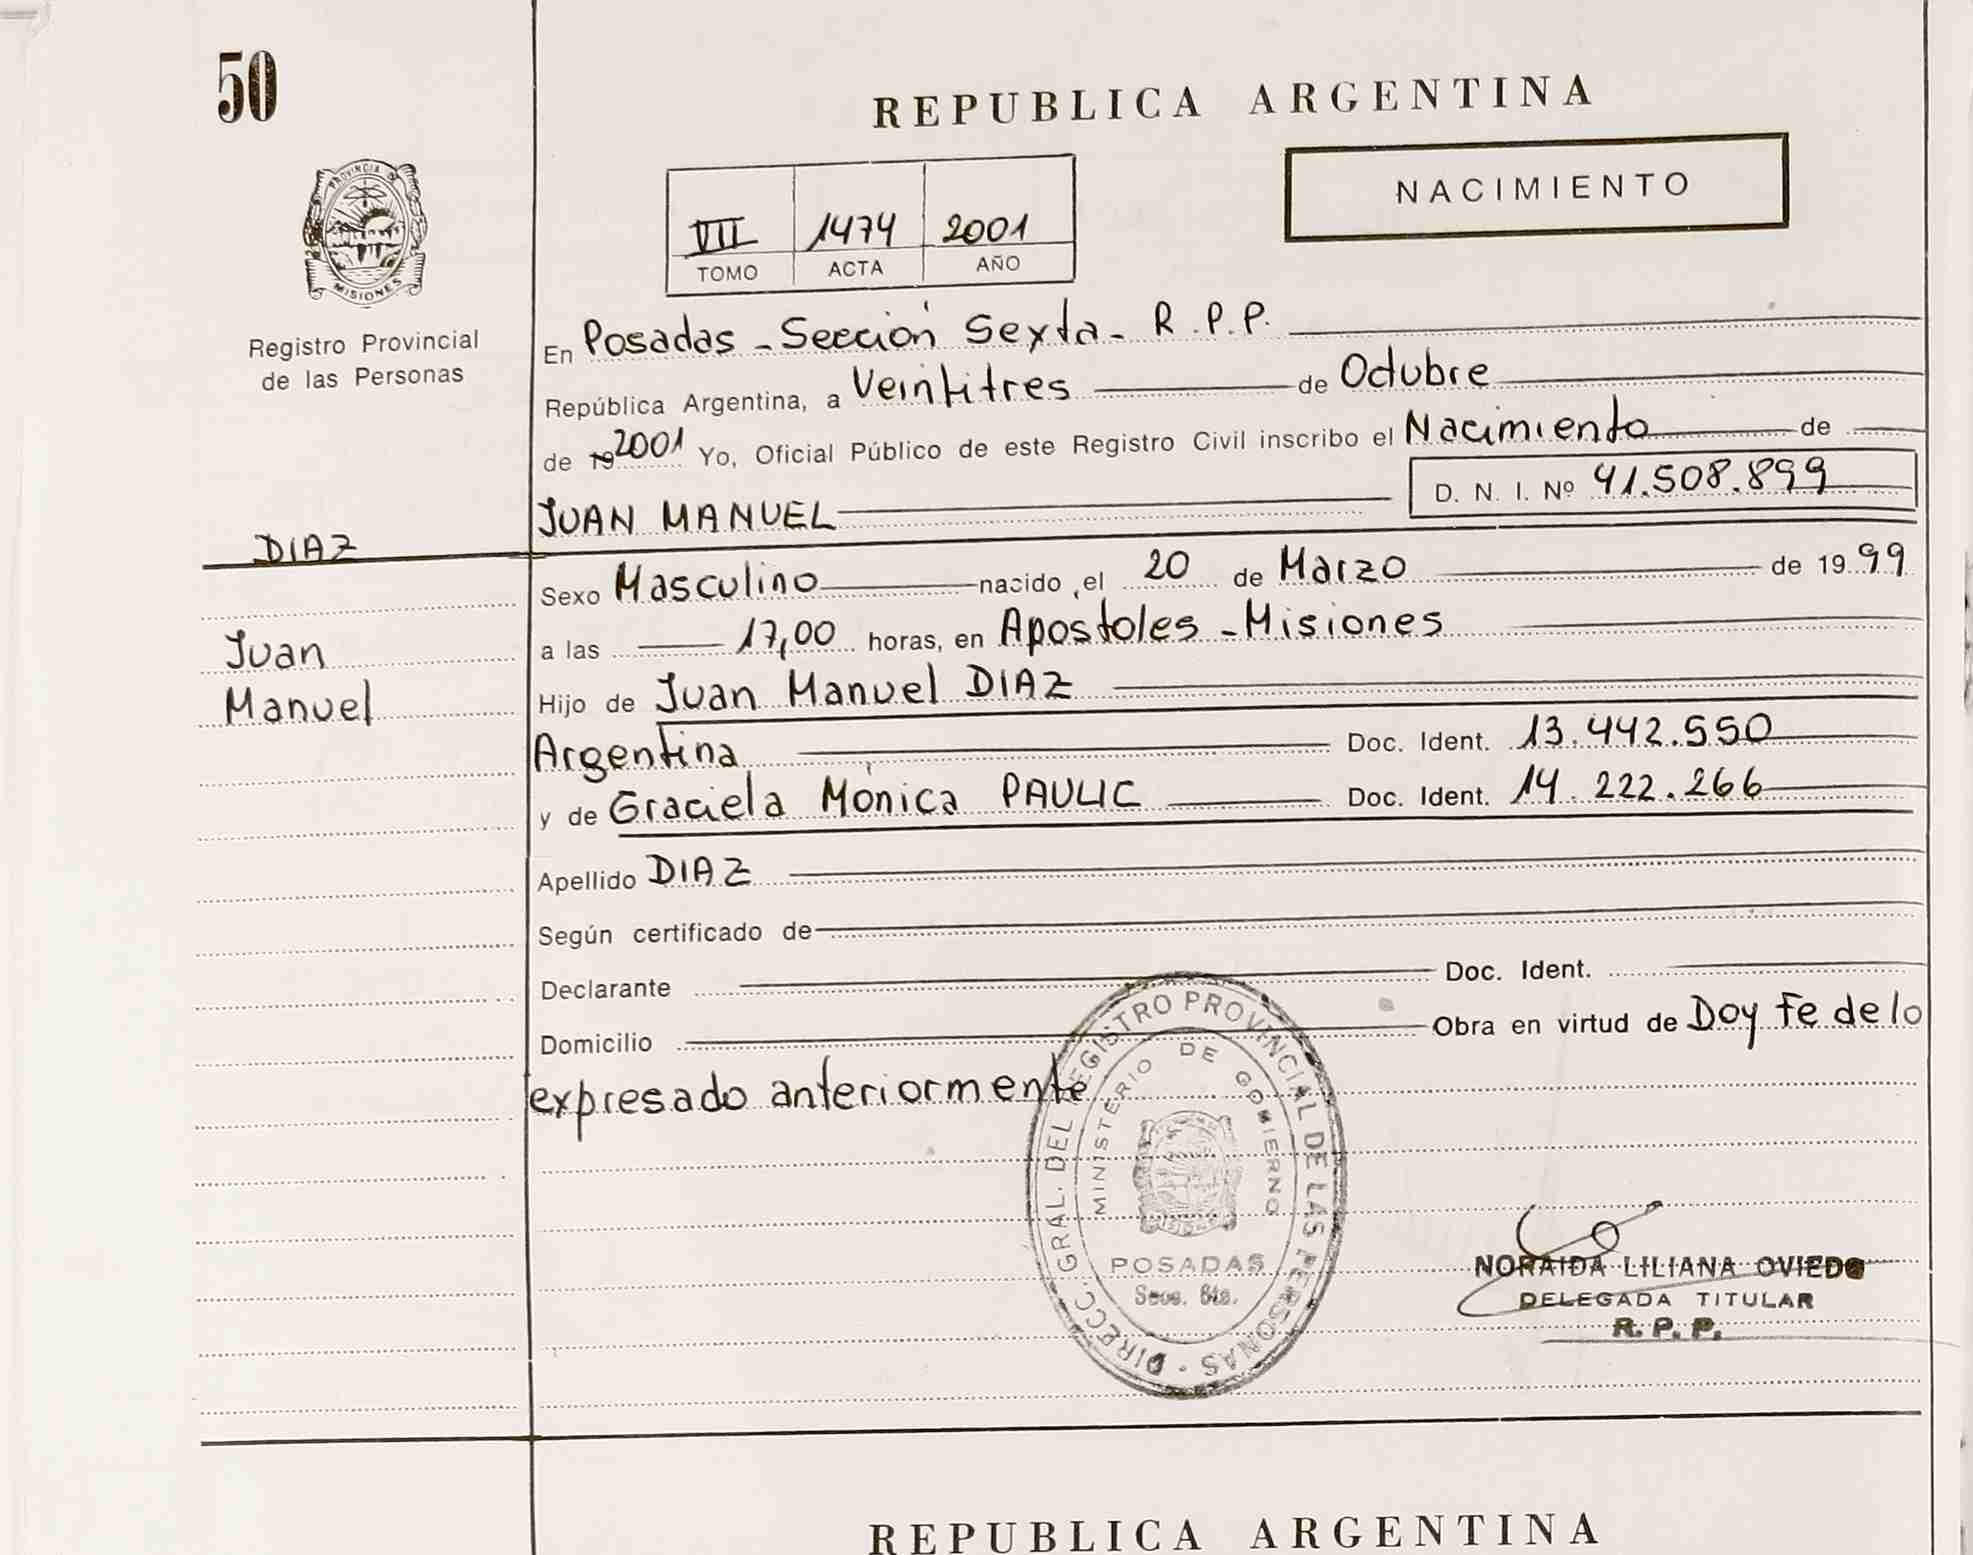 50
REPUBLICA ARGENTINA
NACIMIENTO
PROVINCIA DE
MISIONES
Registro Provincial
de las Personas
VII 1474 2001
TOMO ACTA AÑO
En Posadas - Sección Sexta - R.P.P.
República Argentina, a Veintitres de Octubre
de 19 2001 Yo, Oficial Público de este Registro Civil inscribo el Nacimiento de
JUAN MANUEL D. N. I. Nº 41.508.899
DIAZ
Juan
Manuel
Sexo Masculino nacido, el 20 de Marzo de 1999
a las 17,00 horas, en Apostoles - Misiones
Hijo de Juan Manuel DIAZ
Argentina Doc. Ident. 13.442.550
y de Graciela Mónica PAULIC Doc. Ident. 14.222.266
Apellido DIAZ
Según certificado de
Declarante Doc. Ident.
Domicilio Obra en virtud de Doy Fe de lo
expresado anteriormente
DIRECC. GRAL. DEL REGISTRO PROVINCIAL DE LAS PERSONAS
MINISTERIO DE GOBIERNO
POSADAS
NORAIDA LILIANA OVIEDO
DELEGADA TITULAR
R. P. P.
REPUBLICA ARGENTINA